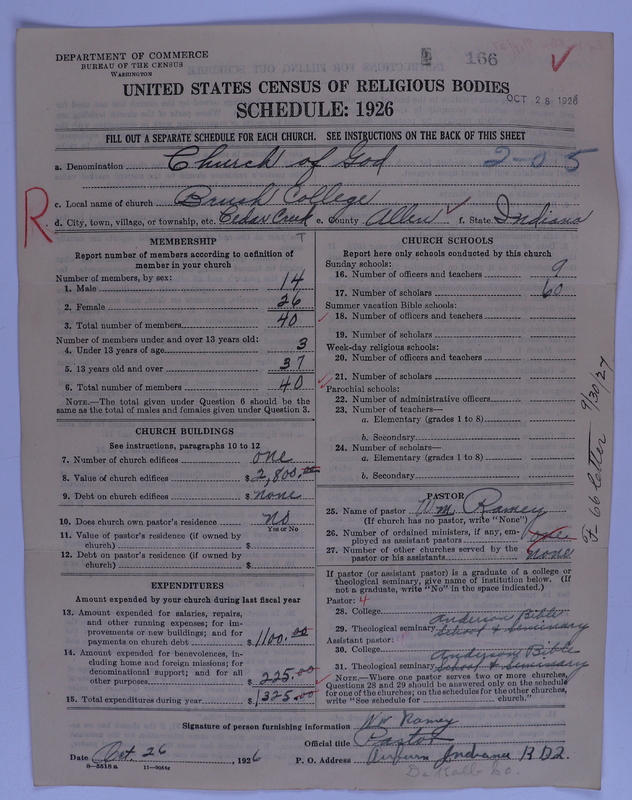 DEPARTMENT OF COMMERCE
BUREAU OF THE CENSUS
WASHINGTON
166
UNITED STATES CENSUS OF RELIGIOUS BODIES
OCT 28 1926
SCHEDULE: 1926
FILL OUT A SEPARATE SCHEDULE FOR EACH CHURCH. SEE INSTRUCTIONS ON THE BACK OF THIS SHEET
a. Denomination Church of God 2-0 5
c. Local name of church Brush College
R d. City, town, village, or township, etc. Cedar Creek e. County Allen f. State Indiana
MEMBERSHIP
Report number of members according to definition of
member in your church
Number of members, by sex:
1. Male 14
2. Female 26
3. Total number of members 40
Number of members under and over 13 years old:
4. Under 13 years of age 3
5. 13 years old and over 37
6. Total number of members 40
NOTE.—The total given under Question 6 should be the
same as the total of males and females given under Question 3.
CHURCH BUILDINGS
See instructions, paragraphs 10 to 12
7. Number of church edifices one
8. Value of church edifices $2,800.00
9. Debt on church edifices $none
10. Does church own pastor's residence no
Yes or No
11. Value of pastor's residence (if owned by
church) $
12. Debt on pastor's residence (if owned by
church) $
EXPENDITURES
Amount expended by your church during last fiscal year
13. Amount expended for salaries, repairs,
and other running expenses; for im-
provements or new buildings; and for
payments on church debt $1100.00
14. Amount expended for benevolences, in-
cluding home and foreign missions; for
denominational support; and for all
other purposes $225.00
15. Total expenditures during year $1325.00
CHURCH SCHOOLS
Report here only schools conducted by this church
Sunday schools:
16. Number of officers and teachers 9
17. Number of scholars 60
Summer vacation Bible schools:
18. Number of officers and teachers
19. Number of scholars
Week-day religious schools:
20. Number of officers and teachers
21. Number of scholars
Parochial schools:
22. Number of administrative officers
23. Number of teachers—
a. Elementary (grades 1 to 8)
b. Secondary
24. Number of scholars—
a. Elementary (grades 1 to 8)
b. Secondary
F-66 letter 9/30/27
PASTOR
25. Name of pastor Wm. Ramey
(If church has no pastor, write "None")
26. Number of ordained ministers, if any, em-
ployed as assistant pastors one
27. Number of other churches served by the
pastor or his assistants none
If pastor (or assistant pastor) is a graduate of a college or
theological seminary, give name of institution below. (If
not a graduate, write "No" in the space indicated.)
Pastor: 4
28. College Anderson Bible
29. Theological seminary School & Seminary
Assistant pastor:
30. College Anderson Bible
31. Theological seminary School & Seminary
NOTE.—Where one pastor serves two or more churches,
Questions 28 and 29 should be answered only on the schedule
for one of the churches; on the schedules for the other churches,
write "See schedule for church."
Signature of person furnishing information Wm Ramey
Official title Pastor
Date Oct. 26, 1926 P. O. Address Auburn Indiana R D2.
8-5518 a
DeKalb Co.